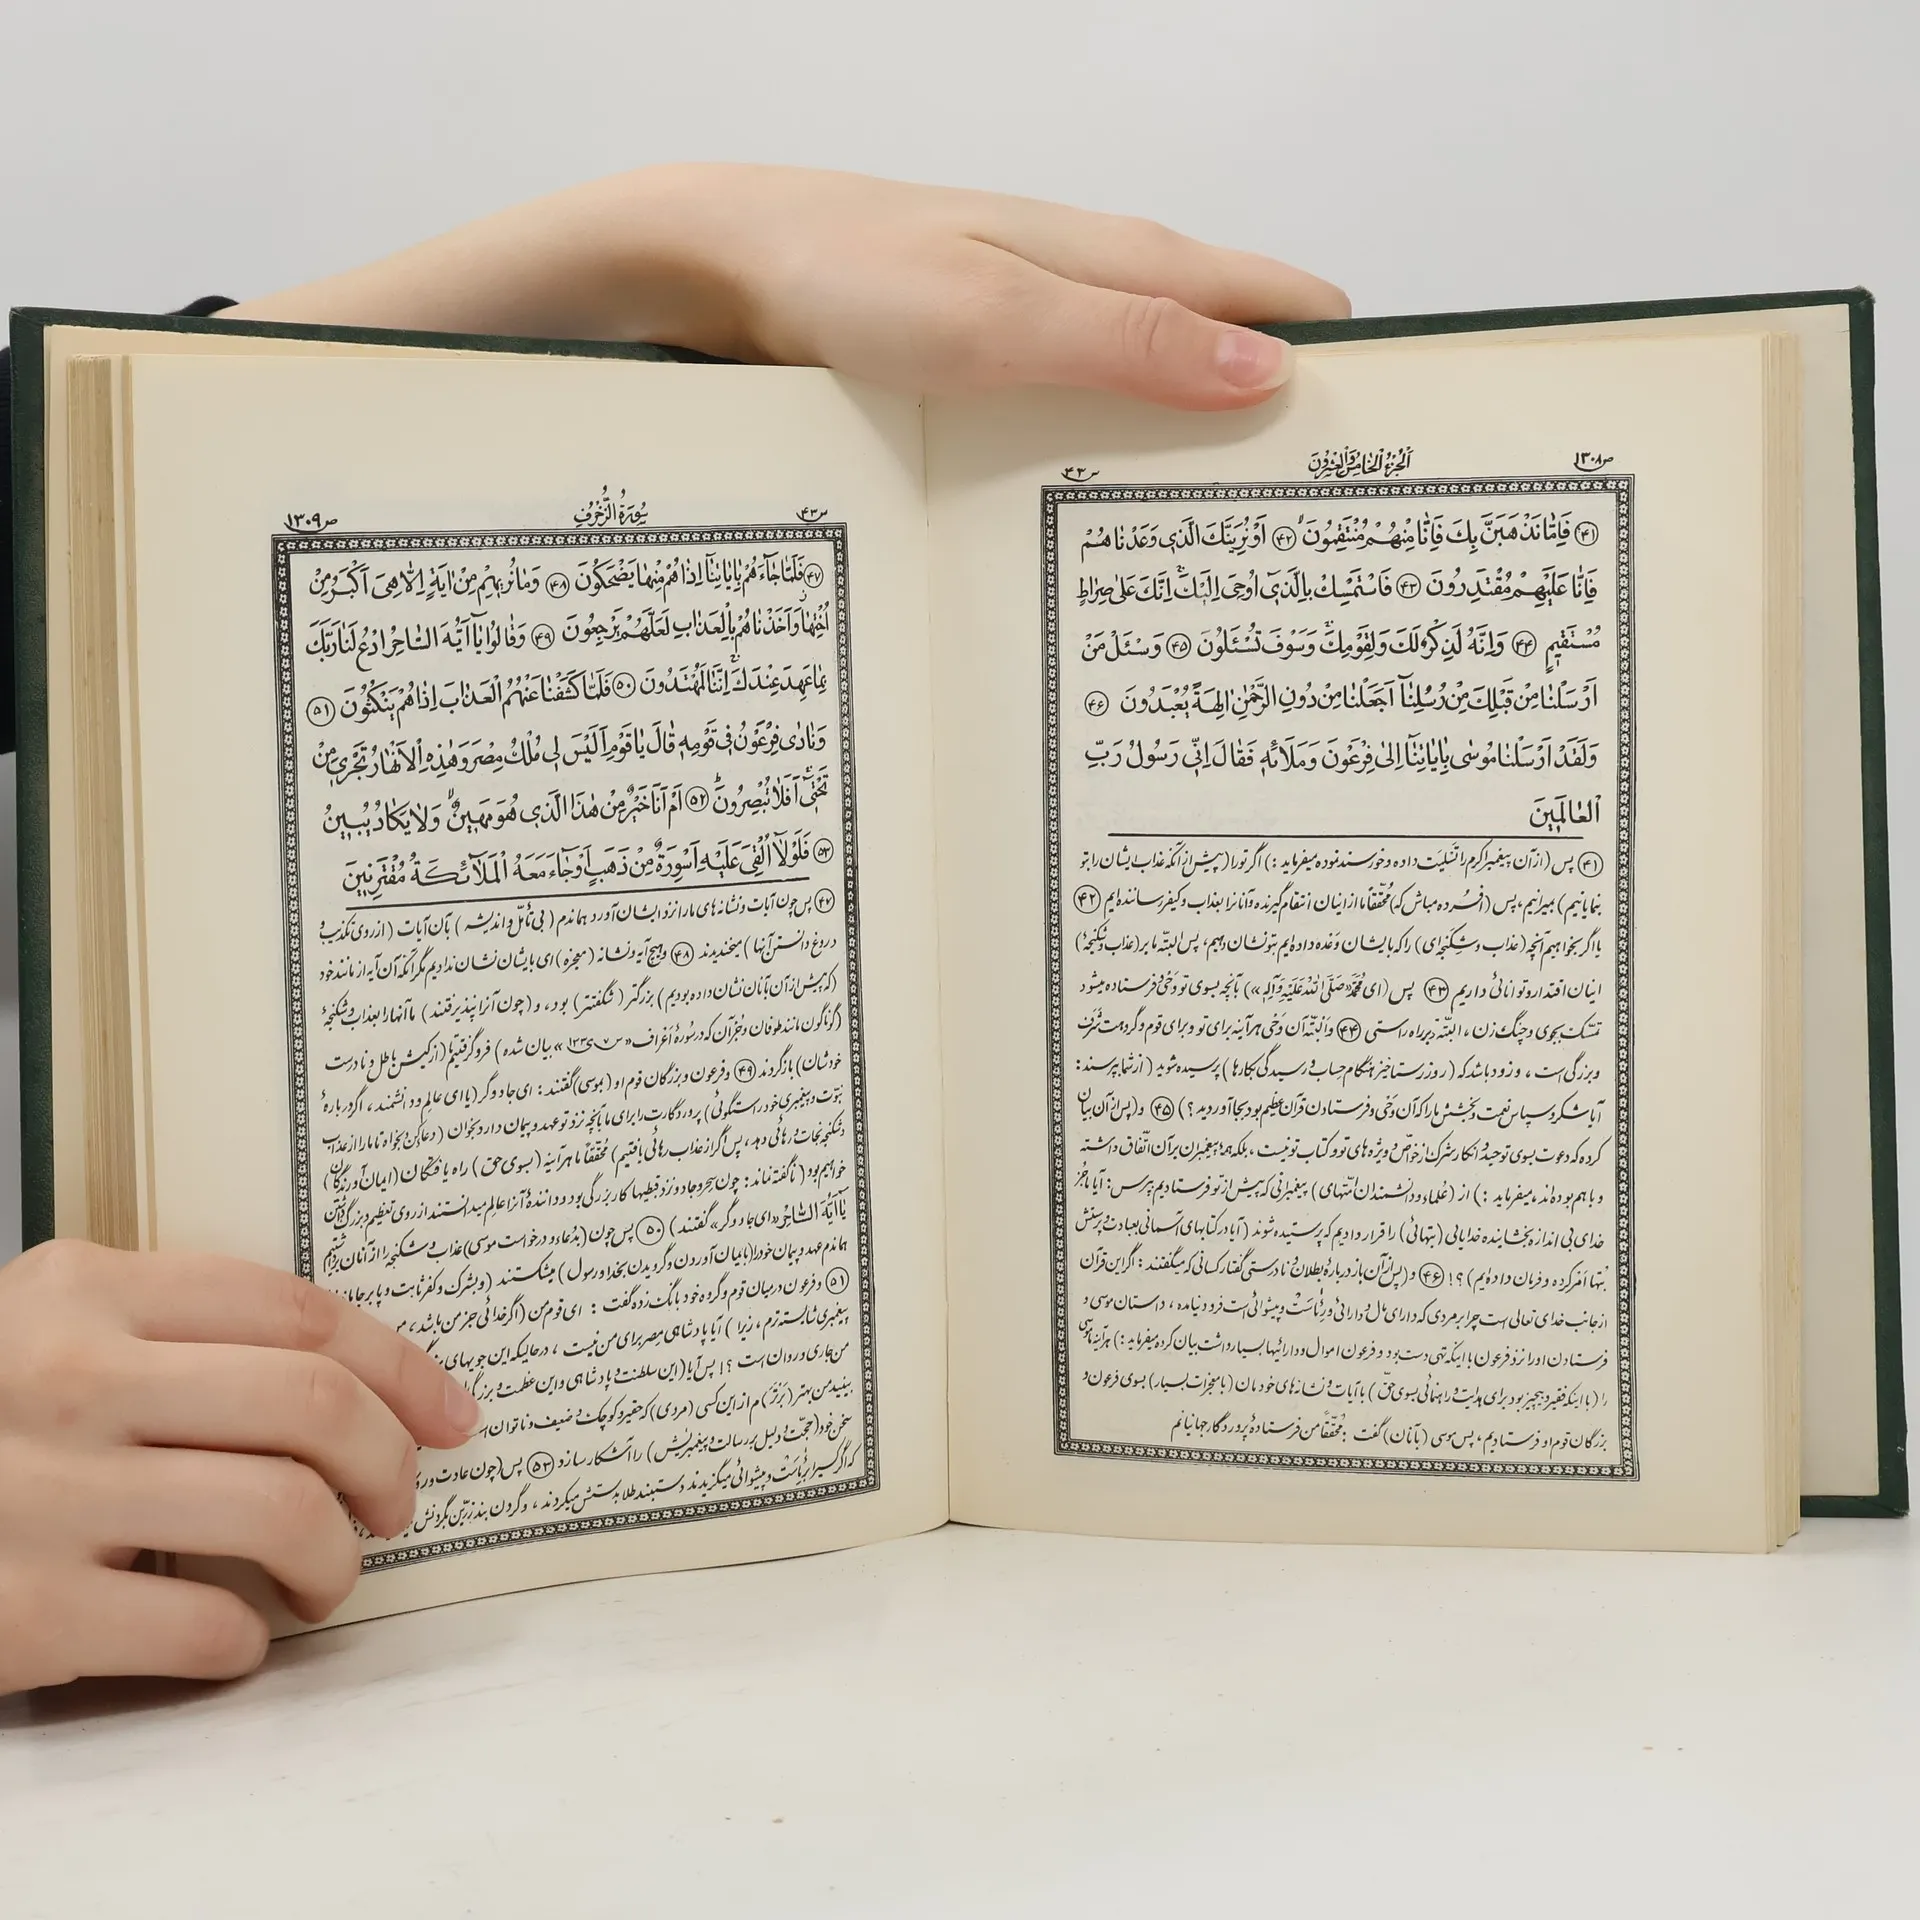 ص۱۳۰۸
اَلْجُزْءُ الْخَامِسُ وَالْعِشْرُونَ
س۴۳
﴿۴۱﴾ فَاِمّٰا نَذْهَبَنَّ بِكَ فَاِنّٰا مِنْهُمْ مُنْتَقِمُونَ ﴿۴۲﴾ اَوْ نُرِيَنَّكَ الَّذِي وَعَدْنٰاهُمْ
فَاِنّٰا عَلَيْهِمْ مُقْتَدِرُونَ ﴿۴۳﴾ فَاسْتَمْسِكْ بِالَّذِيٓ اُوحِيَ اِلَيْكَ اِنَّكَ عَلىٰ صِرٰاطٍ
مُسْتَقِيمٍ ﴿۴۴﴾ وَاِنَّهُ لَذِكْرٌ لَكَ وَلِقَوْمِكَ وَسَوْفَ تُسْئَلُونَ ﴿۴۵﴾ وَسْئَلْ مَنْ
اَرْسَلْنٰا مِنْ قَبْلِكَ مِنْ رُسُلِنٰآ اَجَعَلْنٰا مِنْ دُونِ الرَّحْمٰنِ اٰلِهَةً يُعْبَدُونَ ﴿۴۶﴾
وَلَقَدْ اَرْسَلْنٰا مُوسٰى بِاٰيٰاتِنٰآ اِلىٰ فِرْعَوْنَ وَمَلَائِهِ فَقٰالَ اِنِّي رَسُولُ رَبِّ
الْعٰالَمِينَ
﴿۴۱﴾ پس (از آن پیغمبر اکرم را تَسْلِیَت داده و خورسند نموده میفرماید :) اگر تو را (پیش از آنکه عذاب ایشان را بتو
بنمایانیم) بمیرانیم، پس (افسرده مباش که) مُحَقّقاً ما از اینان انتقام گیرنده و آنانرا بعذاب و کیفر رساننده ایم ﴿۴۲﴾
یا اگر بخواهیم آنچه (عذاب و شکنجه ای) را که بایشان وعده داده ایم بتو نشان دهیم، پس البتّه ما بر (عذاب و شکنجهٔ)
اینان اقتدار و توانائی داریم ﴿۴۳﴾ پس (ای مُحَمَّد «صَلَّی اللهُ عَلَیْهِ وَآلِهِ») بآنچه بسوی تو وحی و فرستاده میشود
تمسّک بجوی و چنگ زن ، البتّه تو بر راه راستی ﴿۴۴﴾ و البتّه آن وَحْی هر آینه برای تو و برای قوم و گروهت شَرَف
و بزرگی است ، و زود باشد که (روز رستاخیز هنگام حساب و رسیدگی بکارها) پرسیده شوید (از شما بپرسند :
آیا شکر و سپاس نعمت و بخشش ما را که آن وَحْی و فرستادن قرآن عظیم بود بجا آوردید ؟) ﴿۴۵﴾ و (پس از آن بیان
کرده که دعوت بسوی توحید و انکار شرک از خواصّ و ویژه های تو و کتاب تو نیست ، بلکه همهٔ پیغمبران بر آن اتّفاق داشته
و با هم بوده اند، میفرماید :) از (علماء و دانشمندان امّتهای) پیغمبرانی که پیش از تو فرستادیم بپرس : آیا ما جُز
خدای بی اندازه بخشاینده خدایانی (بتهائی) را قرار دادیم که پرستیده شوند (آیا در کتابهای آسمانی بعبادت و پرستش
بتها امر کرده و فرمان داده ایم) ؟! ﴿۴۶﴾ و (پس از آن باز دربارهٔ بطلان و نادرستی گفتار کسانی که میگفتند : اگر این قرآن
از جانب خدای تعالی است چرا بر مردی که دارای مال و دارائی و رئاست و پیشوائی است فرود نیامده ، داستان موسی و
فرستادن او را نزد فرعون با اینکه تهی دست بود و فرعون اموال و دارائیها بسیار داشت بیان کرده میفرماید :) هر آینه موسی
را (با اینکه فقیر و بی چیز بود برای هدایت و راهنمائی بسوی حقّ) با آیات و نشانه های خودمان (با معجزات بسیار) بسوی فرعون و
بزرگان قوم او فرستادیم ، پس موسی (بآنان) گفت : مُحَقّقاً من فرستادهٔ پروردگار جهانیانم
س۴۳
سُورَةُ الزُّخْرُفِ
ص۱۳۰۹
﴿۴۷﴾ فَلَمّٰا جٰآءَهُمْ بِاٰيٰاتِنٰآ اِذٰا هُمْ مِنْهٰا يَضْحَكُونَ ﴿۴۸﴾ وَمٰا نُرِيهِمْ مِنْ اٰيَةٍ اِلّٰا هِيَ اَكْبَرُ مِنْ
اُخْتِهٰا وَاَخَذْنٰاهُمْ بِالْعَذٰابِ لَعَلَّهُمْ يَرْجِعُونَ ﴿۴۹﴾ وَقٰالُوا يٰآ اَيُّهَ السّٰاحِرُ ادْعُ لَنٰا رَبَّكَ
بِمٰا عَهِدَ عِنْدَكَ اِنَّنٰا لَمُهْتَدُونَ ﴿۵۰﴾ فَلَمّٰا كَشَفْنٰا عَنْهُمُ الْعَذٰابَ اِذٰا هُمْ يَنْكُثُونَ ﴿۵۱﴾
وَنٰادٰى فِرْعَوْنُ فِي قَوْمِهِ قٰالَ يٰا قَوْمِ اَلَيْسَ لِي مُلْكُ مِصْرَ وَهٰذِهِ الْاَنْهٰارُ تَجْرِي مِنْ
تَحْتِيٓ اَفَلٰا تُبْصِرُونَ ﴿۵۲﴾ اَمْ اَنَا خَيْرٌ مِنْ هٰذَا الَّذِي هُوَ مَهِينٌ وَلٰا يَكٰادُ يُبِينُ
﴿۵۳﴾ فَلَوْلٰآ اُلْقِيَ عَلَيْهِ اَسْوِرَةٌ مِنْ ذَهَبٍ اَوْ جٰآءَ مَعَهُ الْمَلٰٓائِكَةُ مُقْتَرِنِينَ
﴿۴۷﴾ پس چون آیات و نشانه های ما را نزد ایشان آورد هماندم (بی تأمّل و اندیشه) بآن آیات (از روی تکذیب و
دروغ دانستن آنها) میخندیدند ﴿۴۸﴾ و هیچ آیه و نشانه (معجزه) ای بایشان نشان ندادیم مگر آنکه آن آیه از مانند خود
(که پیش از آن بآنان نشان داده بودیم) بزرگتر (شگفتتر) بود ، و (چون آنرا نپذیرفتند) ما آنها را بعذاب و شکنجهٔ
(گوناگون مانند طوفان و جُز آن که در سورهٔ اَعراف «س۷ی۱۳۳» بیان شده) فرو گرفتیم تا (از کیش باطل و نادرست
خودشان) بازگردند ﴿۴۹﴾ و فرعون و بزرگان قوم او (بموسی) گفتند : ای جادوگر (یا ای عالم و دانشمند ، اگر دربارهٔ
نبوّت و پیغمبری خود راستگوئی) پروردگارت را برای ما بآنچه نزد تو عهد و پیمان دارد بخوان (دعا کن و بخواه تا ما را از عذاب
و شکنجه نجات و رهائی دهد، پس اگر از عذاب رهائی یافتیم) مُحَقّقاً ما هر آینه (بسوی حق) راه یافتگان (ایمان آورندگان)
خواهیم بود (ناگفته نماند : چون سِحر و جادو نزد قبطیها کار بزرگی بود و دانندهٔ آنرا عالم میدانستند از روی تعظیم و بزرگ داشتن
يٰآ اَيُّهَ السّٰاحِرُ «ای جادوگر» گفتند) ﴿۵۰﴾ پس چون (بدُعاء و درخواست موسی) عذاب و شکنجه را از آنان برداشتیم
هماندم عهد و پیمان خود را (بایمان آوردن و گرویدن بخدا و رسول) میشکستند (و بشرک و کفر ثابت و پابرجا
﴿۵۱﴾ و فرعون در میان قوم و گروه خود بانگ زده گفت : ای قوم من (اگر خدائی جز من باشد ،
پیغمبری شایسته ترم ، زیرا) آیا پادشاهی مصر برای من نیست ، در حالیکه این جویهای
من جاری و روان است ؟! پس آیا (این سلطنت و پادشاهی و این عظمت و
ببینید من بهتر (برتر) م از این کسی (مردی) که حقیر و کوچک و ضعیف و ناتوان
سخن خود (حجّت و دلیل بر رسالت و پیغمبریش) را آشکار سازد ﴿۵۳﴾ پس (چون عادت و
که اگر کسیرا برئاست و پیشوائی میگزیدند دستبند طلا بدستش میکردند ، و گردن بند زرّین بگردنش